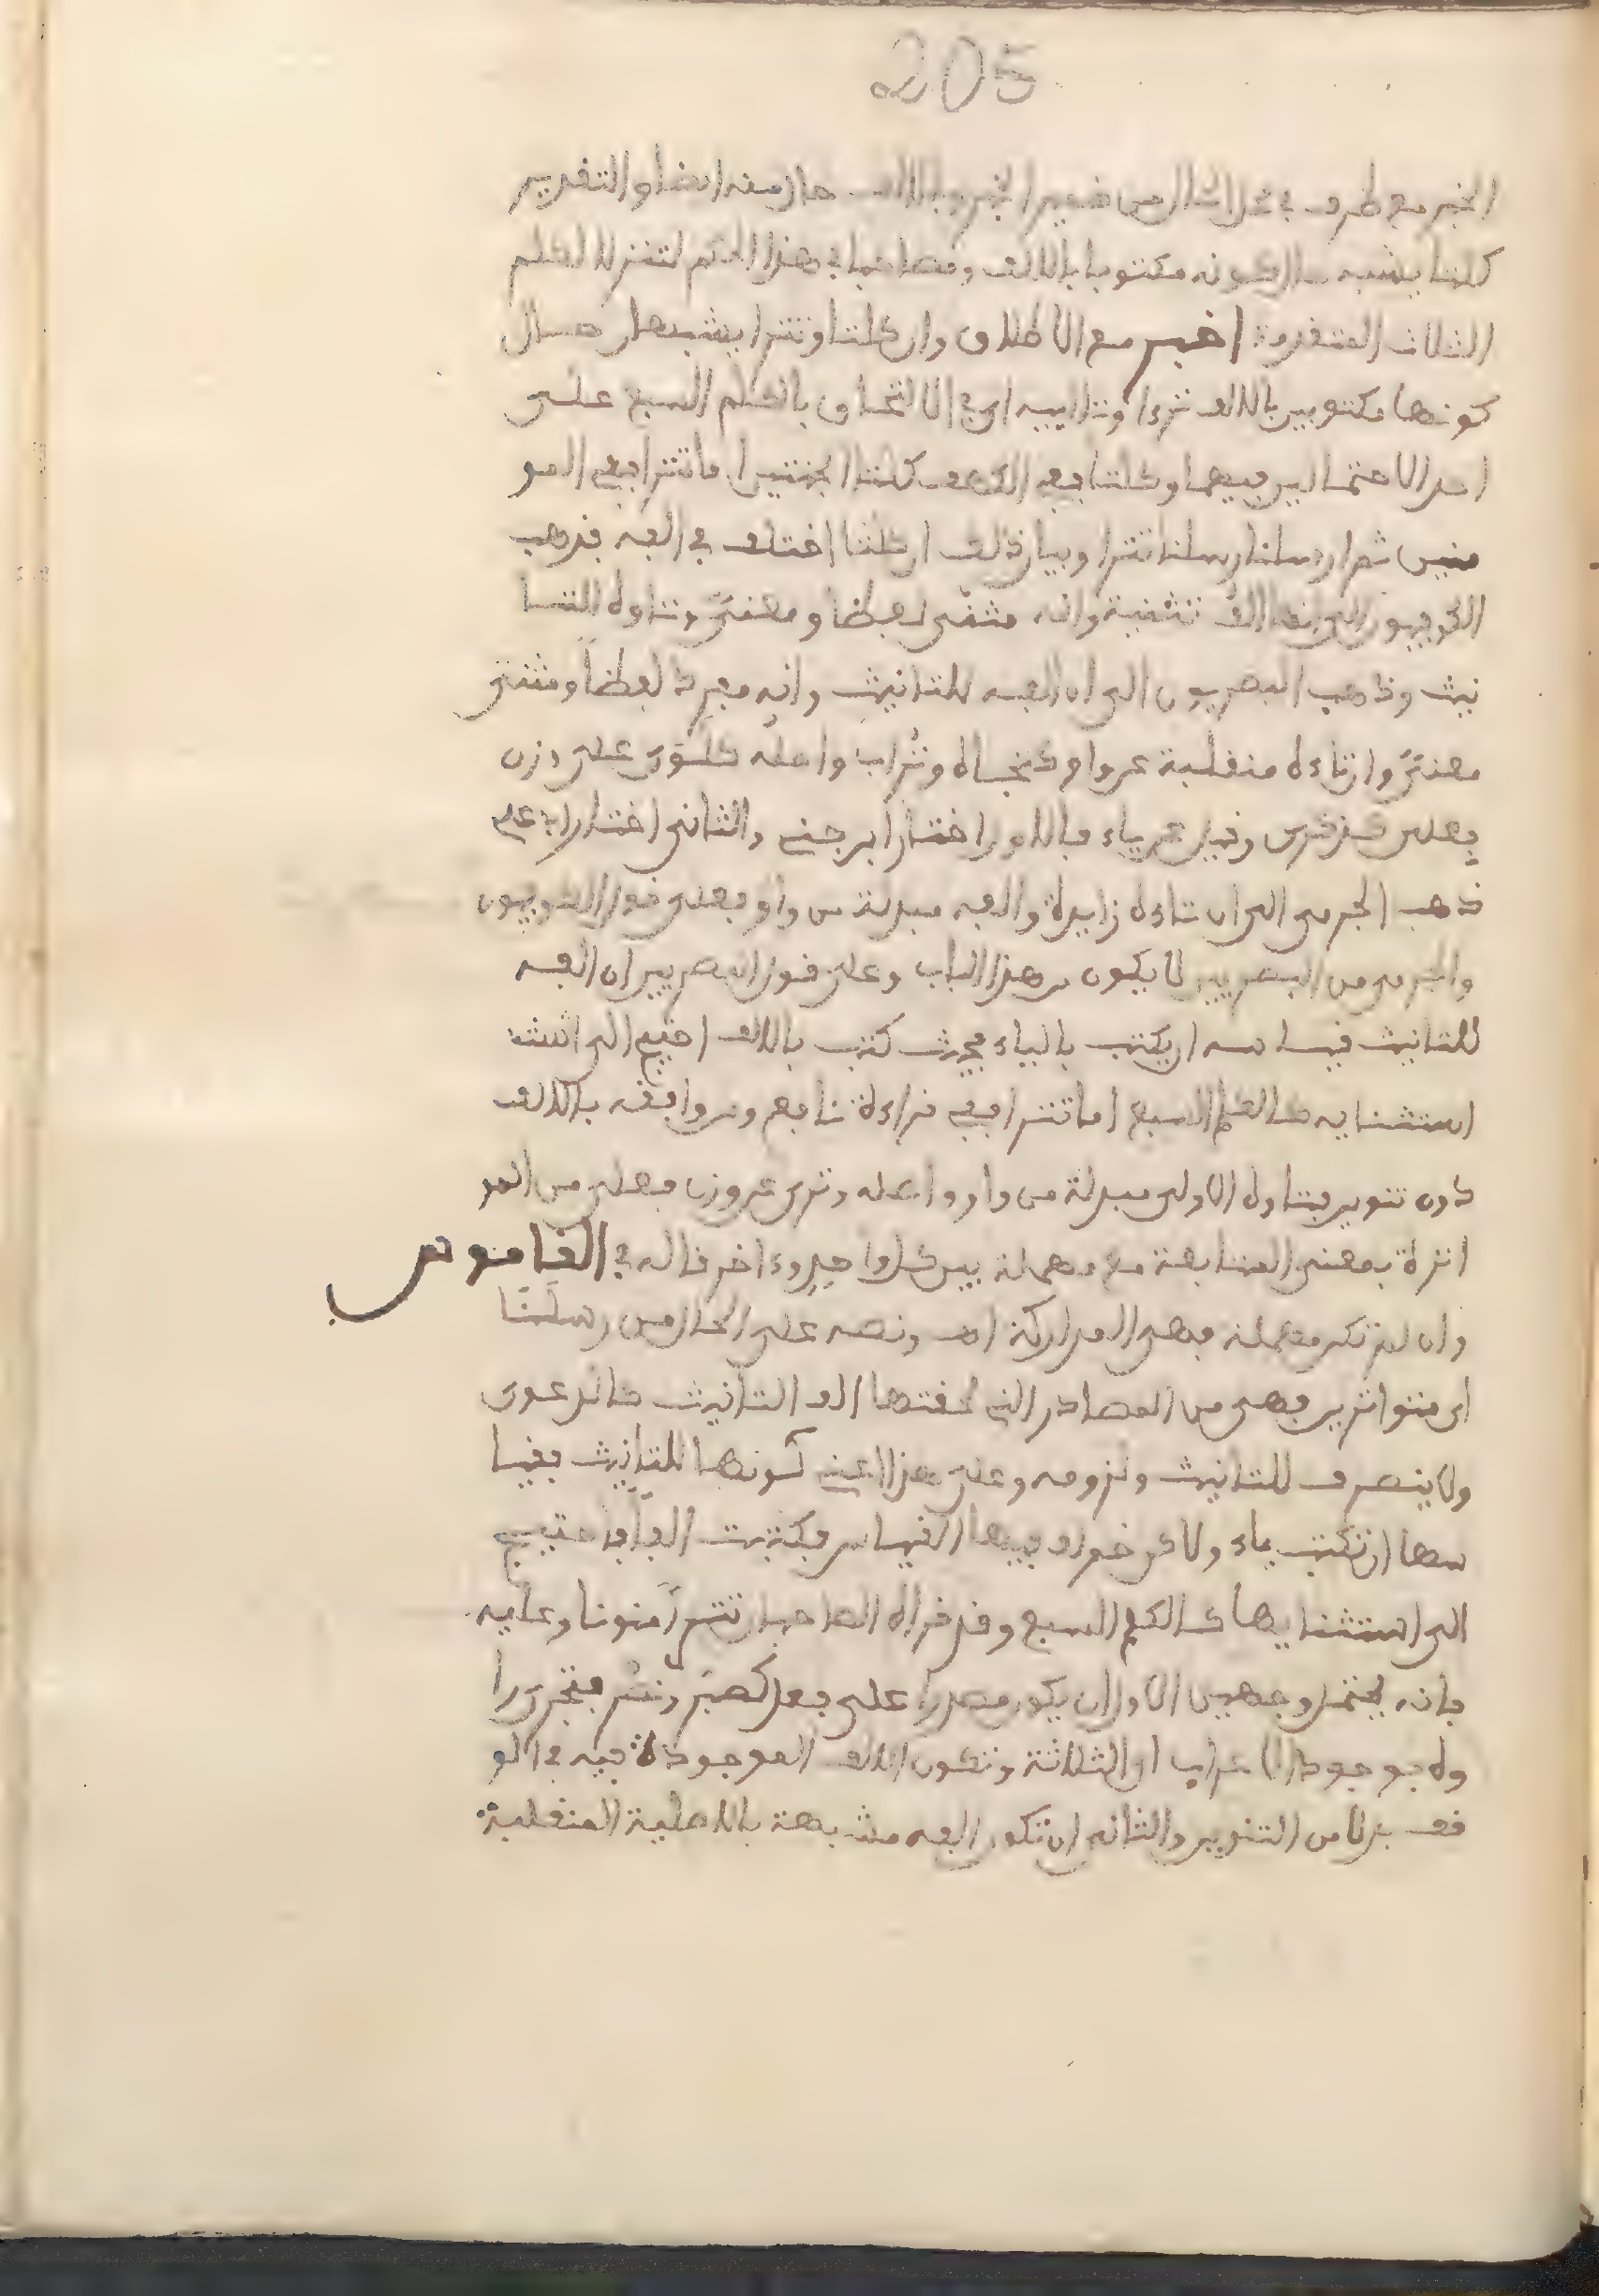 205
الخبر مع ظرف في محل الحال من ضمير الخبر وبالالف حال منه ايضا والتقدير
كلتا يشبه حال كونه مكتوبا بالالف ومصاحبا في هذا الحكم لتتر للكلم
الثلاث المتقدمة اخبر مع الاطلاق وان كلتا وتترا يشبهان حال
كونهما مكتوبين بالالف تترءا وتراييه اي في الالتحاق بالكلم السبع على
احد الاحتمالين فيهما وكلتا ففي الكهف كلتا الجنتين اما تترا ففي المو
منين ثم ارسلنا رسلنا تترا وبيان ذلك ان كلتا اختلف في الفه فذهب
الكوفيون الى انها الف تثنية وانه مثنى لفظا ومعنى وتاوه للتا
نيث وذهب البصريون الى ان الفه للتانيث وانه مفرد لفظا ومثنى
معنى وان تاءه منقلبة عن واو كتجاه وتراب واصله كلوى على وزن
فعلى كذكرى وقيل عن ياء فالاول اختار ابن جني والثاني اختار ابو علي
ذهب الجرمي الى ان تاءه زايدة والفه مبدلة من واو فعلى قول الكوفيون
والجرمي من البصريين لا يكون من هذا الباب وعلى قول البصريين ان الفه
للتانيث قياسه ان يكتب بالياء فحيث كتب بالالف احتيج الى
استثنايه كالكلم السبع اما تترا ففي قراءة نافع ومن وافقه بالالف
دون تنوين فتاوه الاولى مبدلة من واو واصله وترى على وزن فعلى من المو
اترة بمعنى المتابعة مع مهملة بين كل واحد واخر قاله في القاموس
وان لم تكن مهملة فهي المداركة اه ونصبه على الحال من رسلنا
اي متواترين فهي من المصادر التي لحقتها الف التانيث كالدعوى
ولا ينصرف للتانيث ولزومه وعلى هذا اعني كونها للتانيث فقيا
سها ان تكتب ياء ولاكن خولف فيها القياس فكتبت الفا فاحتيج
الى استثنايها كالكلم السبع وقد قراه الصاحبان تترا منونا وعليه
فانه يحتمل وجهين الاول ان يكون مصدرا على فعل كصبر ونصر فتجري را
وه بوجود الاعراب الثلاثة وتكون الالف الموجودة فيه في الو
قف بدلا من التنوين والثاني ان تكون الفه مشبهة بالاصلية المنقلبة